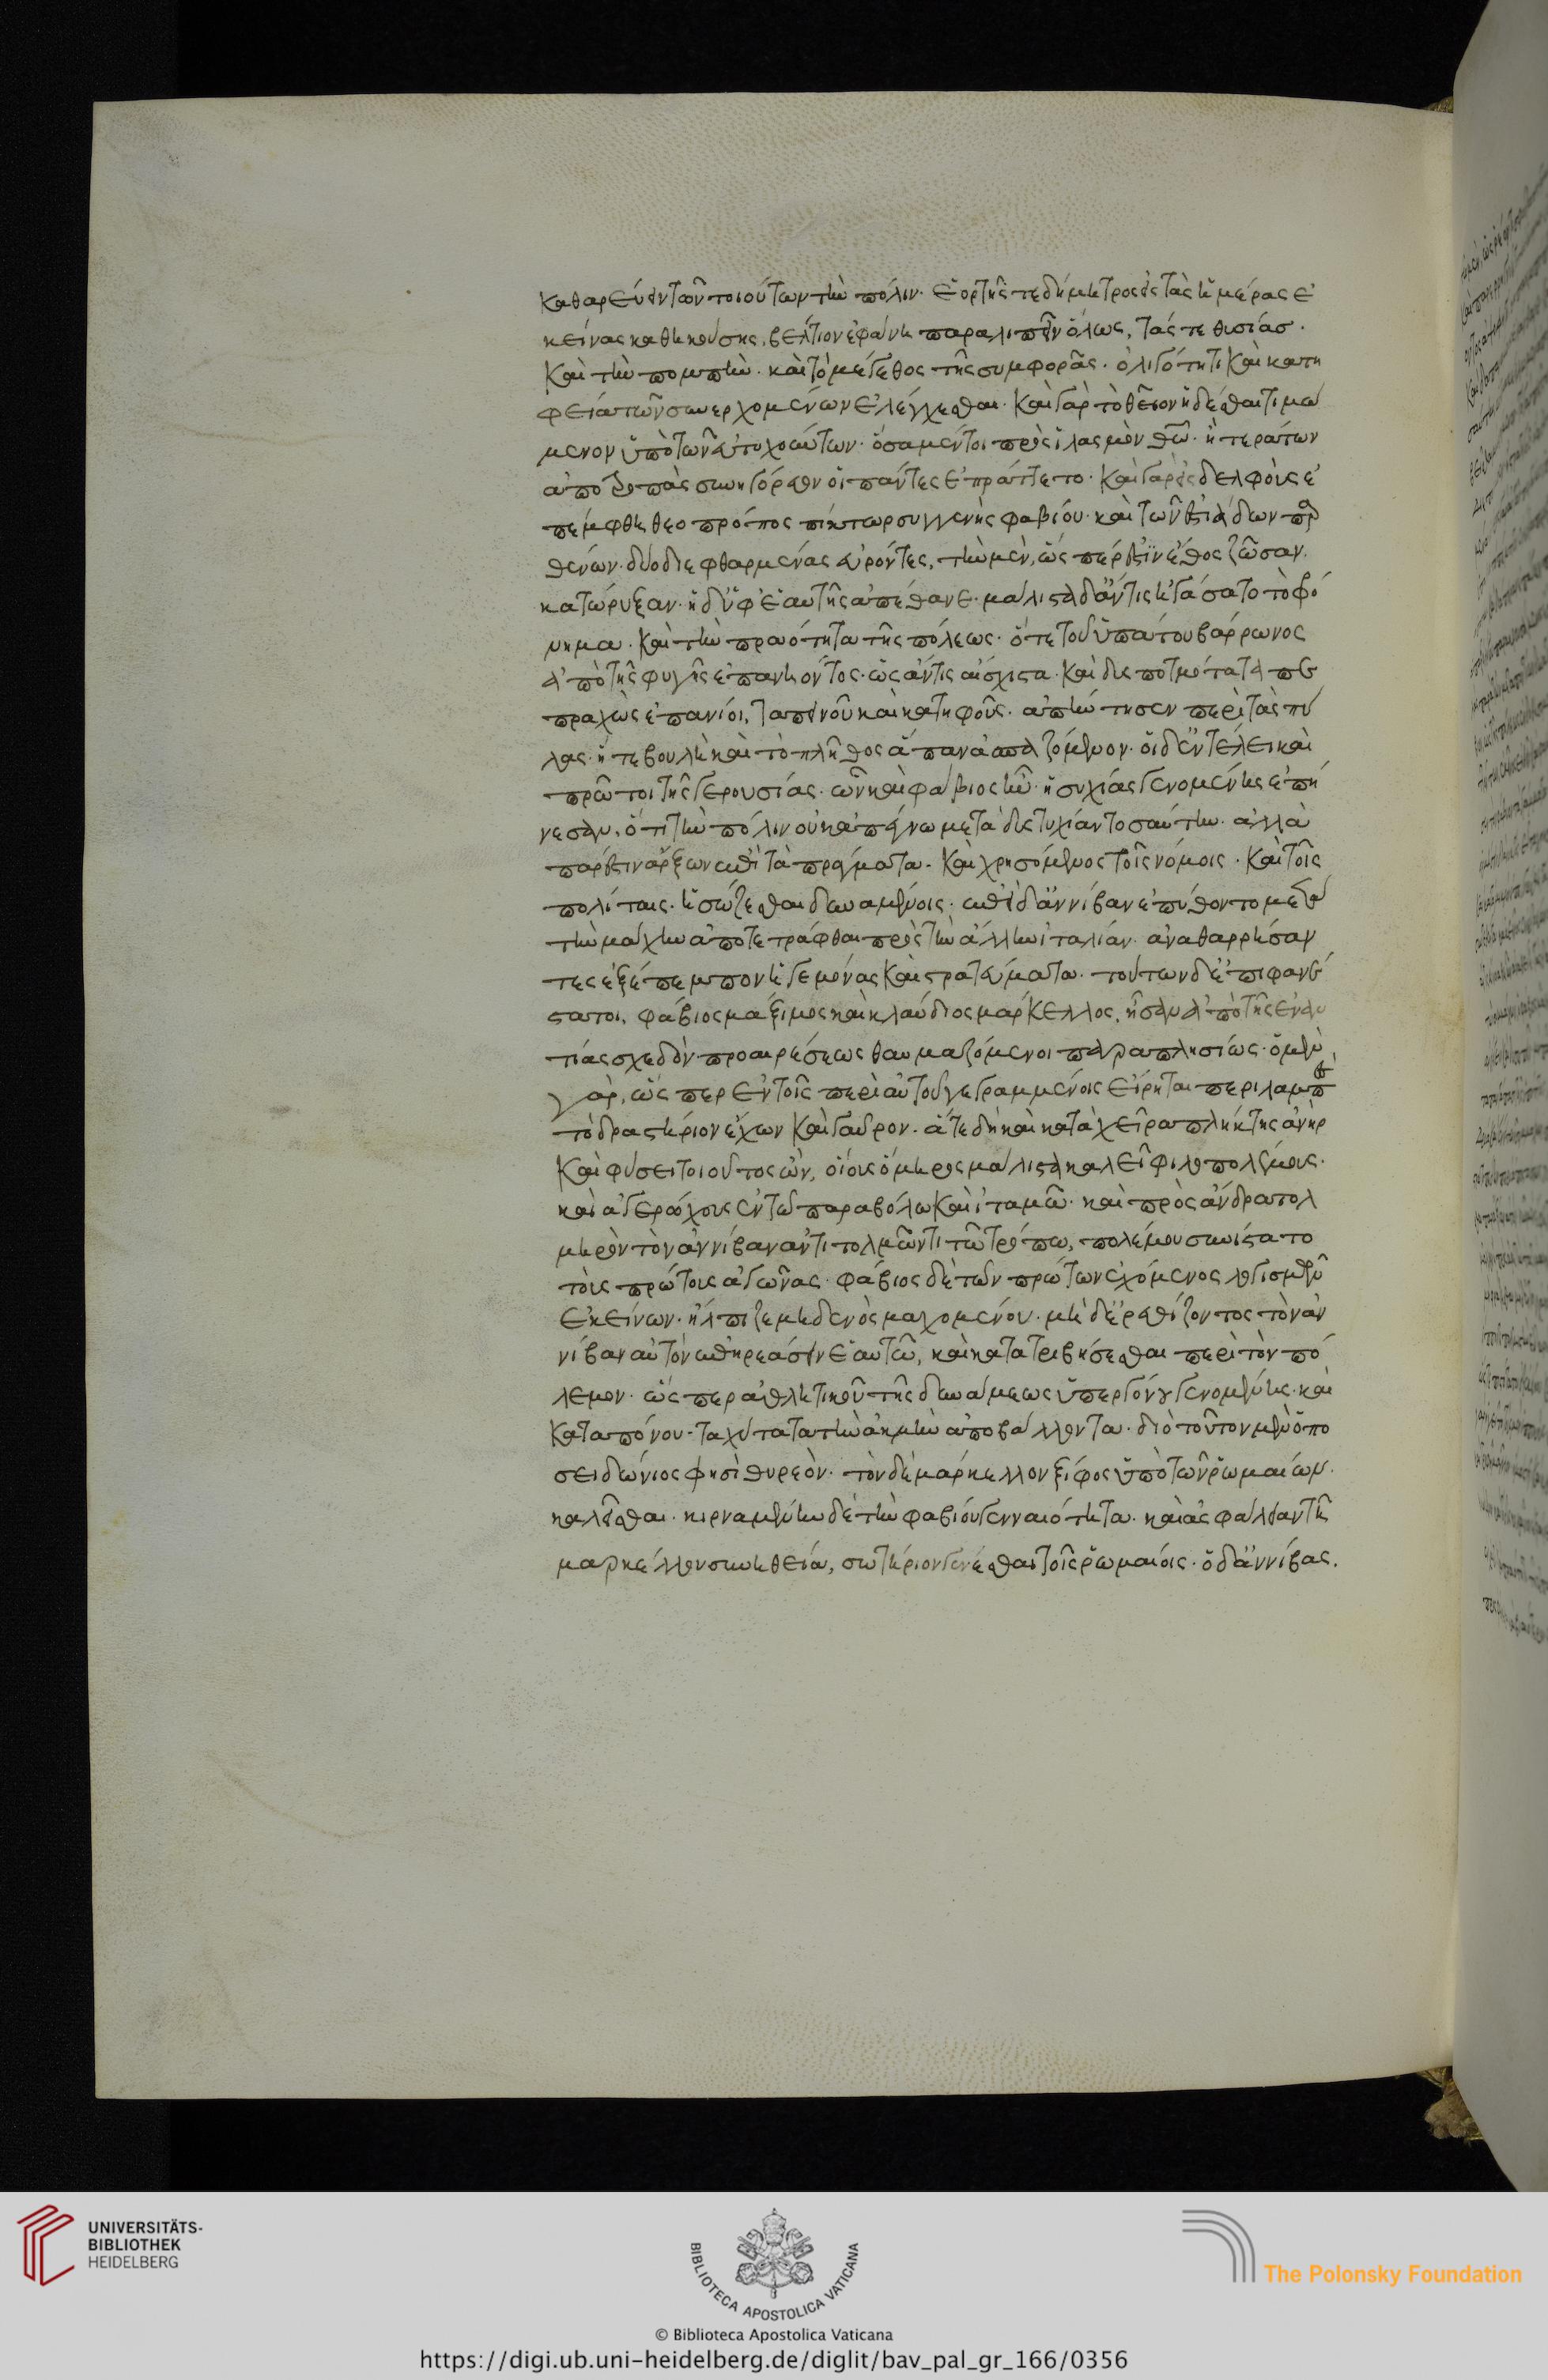 καθαρεύειν τῶν τοιούτων τὴν πόλιν· ἑορτῆς τε δήμητρος εἰς τὰς ἡμέρας ἐ
κείνας καθηκούσης, βέλτιον ἐφάνη παραλιπεῖν ὅλως, τάς τε θυσίασ·
καὶ τὴν πομπὴν· καὶ τὸ μέγεθος τῆς συμφορᾶς· ὀλιγότητι καὶ κατη
φείᾳ τῶν συνερχομένων ἐλέγχεσθαι· καὶ γὰρ τὸ θεῖον ἥδεσθαι τιμώ
μενον ὑπὸ τῶν εὐτυχούντων· ὅσα μέντοι πρὸς ἱλασμὸν θεῶν· ἢ τεράτων
ἀποτροπὰς συνηγόρευον οἱ πάντες ἐπράττετο· καὶ γὰρ εἰς δελφοὺς ἐ
πέμφθη θεοπρόπος πίκτωρ συγγενὴς φαβίου· καὶ τῶν ἑστιάδων παρ
θένων· δύο διεφθαρμένας εὑρόντες, τὴν μὲν, ὥς περ ἐστὶν ἔθος ζῶσαν.
κατώρυξαν· ἡ δ' ὑφ' ἑαυτῆς ἀπέθανε· μάλιστα δ' ἄν τις ἠγάσατο τὸ φρό
νημα· καὶ τὴν πραότητα τῆς πόλεως· ὅτε τοῦ ὑπάτου βάρρωνος
ἀπὸ τῆς φυγῆς ἐπανιόντος· ὡς ἄν τις αἴσχιστα· καὶ δυσποτμότατα πε
πραχὼς ἐπανίοι, ταπεινοῦ καὶ κατηφοῦς· ἀπήντησεν περὶ τὰς πύ
λας· ἥ τε βουλὴ καὶ τὸ πλῆθος ἅπαν ἀσπαζόμενον· οἱ δ' ἐν τέλει καὶ
πρῶτοι τῆς γερουσίας· ὧν καὶ φάβιος ἦν· ἡσυχίας γενομένης ἐπῄ
νεσαν, ὅτι τὴν πόλιν οὐκ ἀπέγνω μετὰ δυστυχίαν τοσαύτην· ἀλλὰ
πάρεστιν ἄρξων ἐπὶ τὰ πράγματα· καὶ χρησόμενος τοῖς νόμοις· καὶ τοῖς
πολίταις· ἢ σώζεσθαι δυναμένοις· ἐπεὶ δ' ἀννίβαν ἐπύθοντο μετὰ
τὴν μάχην ἀποτετράφθαι πρὸς τὴν ἄλλην ἰταλίαν· ἀναθαρρήσαν
τες ἐξέπεμπον ἡγεμόνας καὶ στρατεύματα· τούτων δ' ἐπιφανέ
στατοι, φάβιος μάξιμος καὶ κλαύδιος μάρκελλος, ἦσαν ἀπὸ τῆς ἐναν
τίας σχεδὸν προαιρέσεως θαυμαζόμενοι παραπλησίως· ὁ μὲν
γὰρ, ὥς περ ἐν τοῖς περὶ αὐτοῦ γεγραμμένοις εἴρηται περιλαμπὲς
τὸ δραστήριον ἔχων καὶ γαῦρον· ἅτε δὴ καὶ κατὰ χεῖρα πλήκτης ἀνὴρ
καὶ φύσει τοιοῦτος ὢν, οἵους ὅμηρος μάλιστα καλεῖ φιλοπολέμους·
καὶ ἀγερώχους ἐν τῷ παραβόλῳ καὶ ἰταμῷ· καὶ πρὸς ἄνδρα τολ
μηρὸν τὸν ἀννίβαν ἀντιτολμῶντι τῷ τρόπῳ, πολέμου συνίστατο
τοῖς πρώτοις ἀγῶνας· φάβιος δὲ τῶν πρώτων ἐχόμενος λογισμῶν
ἐκείνων· ἤλπιζε μηδενὸς μαχομένου· μὴ δ' ἐρεθίζοντος τὸν ἀν
νίβαν αὐτὸν ἐπηρεάσειν ἑαυτῷ, καὶ κατατριβήσεσθαι περὶ τὸν πό
λεμον· ὥς περ ἀθλητικοῦ τῆς δυνάμεως ὑπερτόνου γενομένης· καὶ
καταπόνου· ταχύτατα τὴν ἀκμὴν ἀποβάλλοντα· διὸ τοῦτον μὲν ὁ πο
σειδώνιος φησὶ θυρεὸν· τὸν δὲ μάρκελλον ξίφος ὑπὸ τῶν ῥωμαίων.
καλεῖσθαι· κιρναμένην δὲ τὴν φαβίου γενναιότητα· καὶ ἀσφάλειαν τῇ
μαρκέλλου συνηθείᾳ, σωτήριον γενέσθαι τοῖς ῥωμαίοις· ὁ δ' ἀννίβας.
UNIVERSITÄTS-
BIBLIOTHEK
HEIDELBERG
BIBLIOTECA APOSTOLICA VATICANA
The Polonsky Foundation
© Biblioteca Apostolica Vaticana
https://digi.ub.uni-heidelberg.de/diglit/bav_pal_gr_166/0356